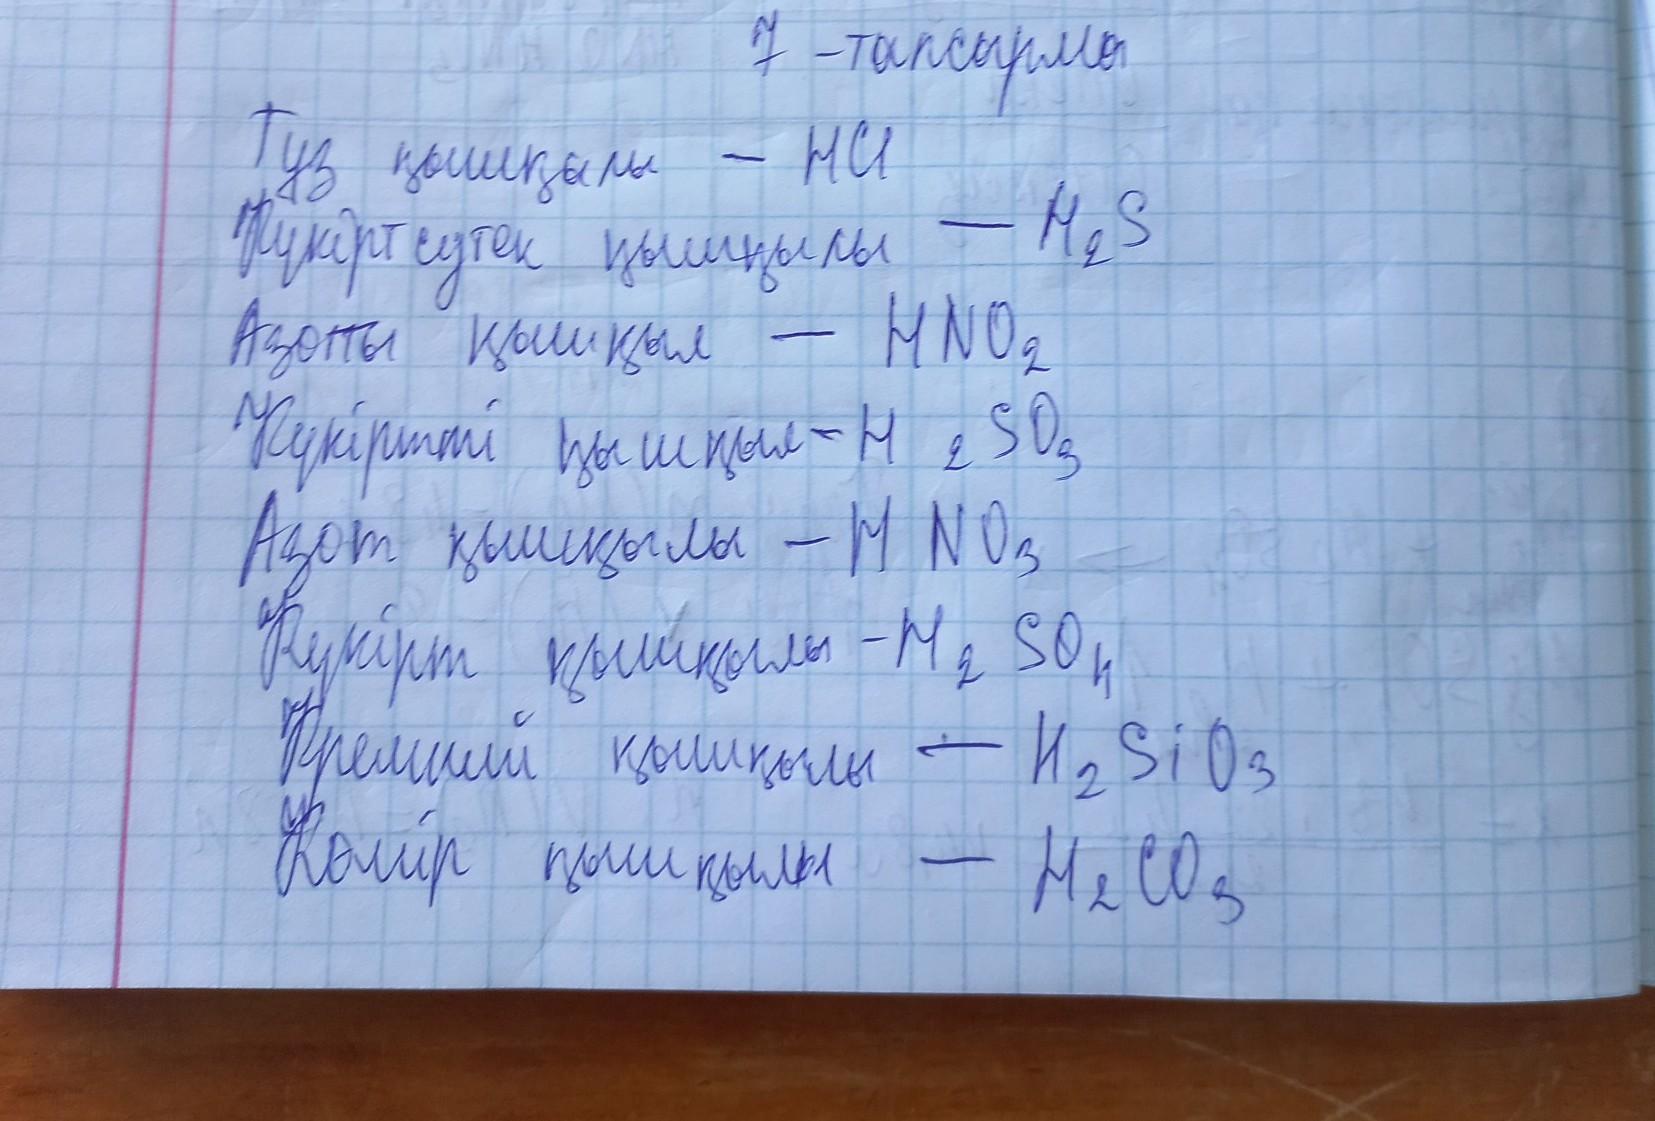 7 -тапсырма
Тұз қышқылы — HCl
Күкіртсутек қышқылы — H₂S
Азотты қышқыл — HNO₂
Күкіртті қышқыл - H ₂SO₃
Азот қышқылы — H NO₃
Күкірт қышқылы - H₂ SO₄
Кремний қышқылы — H₂SiO₃
Көмір қышқылы — H₂CO₃